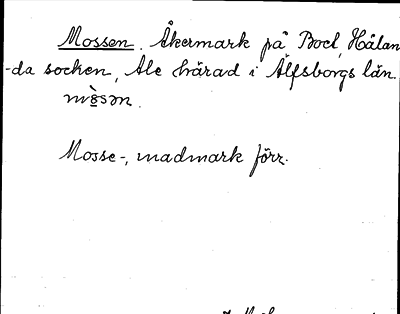 Mossen. Åkermark på Boel, Hålan-
-da socken, Ale härad i Älfsborgs län.
mo̱̊̀sən.
Mosse-, madmark förr.